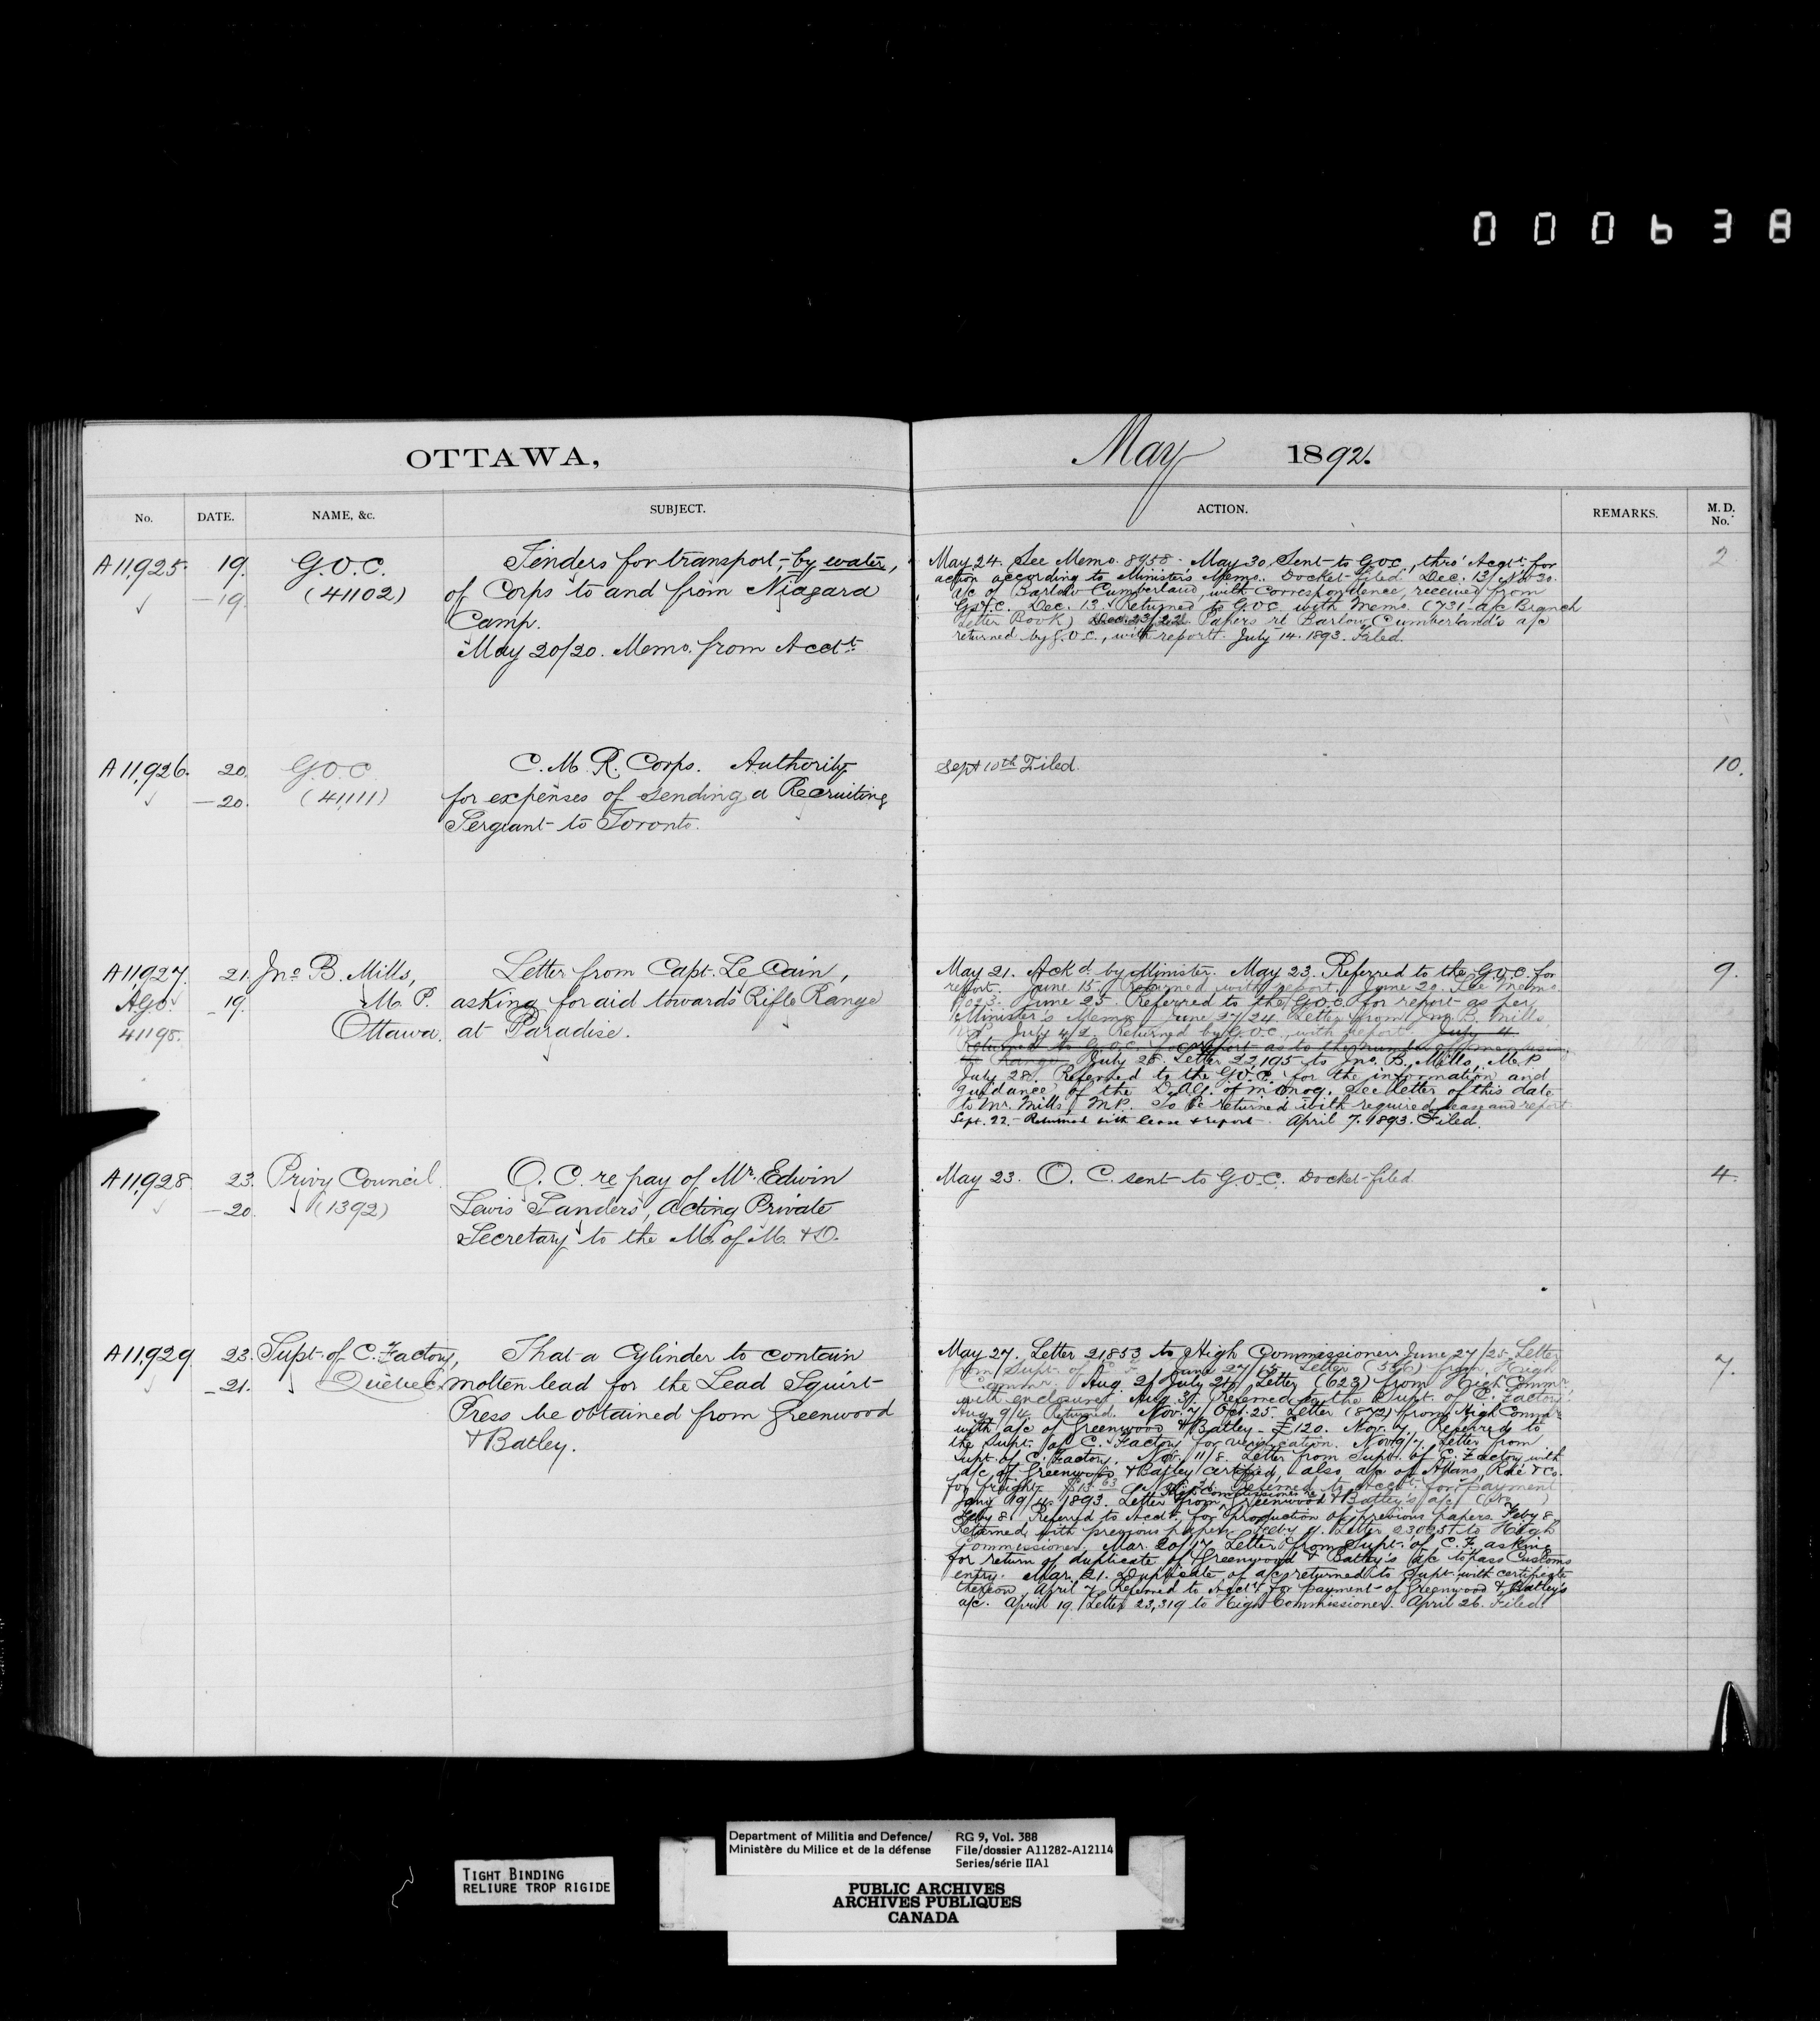 000638
OTTAWA,
May 1892.
No. DATE. NAME, &c. SUBJECT. ACTION. REMARKS. M. D. No.
A11,925. 19. G.O.C. Tenders for transport, by water,
✓ —19. (41102) of Corps to and from Niagara
Camp.
May 20/20. Memo. from Acct.
May 24. See Memo. 8958. May 30. Sent to G.O.C., thro' Acct. for
action according to Minister's Memo. Docket filed. Dec. 13/ Nov 30.
a/c of Barlow Cumberland, with Correspondence, received from
G.O.C. Dec. 13. Returned to G.O.C. with Memo. (731 a/c Branch
Letter Book) Dec. 23/22. Papers re Barlow Cumberland's a/c
returned by G.O.C., with report. July 14. 1893. Filed.
2
A11,926. 20. G.O.C. C. M. R. Corps. Authority
✓ —20. (41111) for expenses of sending a Recruiting
Sergeant to Toronto.
Sept 10th Filed.
10.
A11,927. 21. Jno. B. Mills, Letter from Capt. Le Cain,
A.G.O. —19. M. P. asking for aid towards Rifle Range
41198. Ottawa. at Paradise.
May 21. Ack'd. by Minister. May 23. Referred to the G.O.C. for
report. June 15. Returned with report. June 20. See Memo.
June 25. Referred to the G.O.C. for report as per
Minister's Memo. June 27/24. Letter from Jno. B. Mills,
M.P. July 4/2. Returned by G.O.C., with report. July 4
Returned to G.O.C. for report as to the number of men using
the Range. July 28. Letter 22,195 to Jno. B. Mills, M.P.
July 28. Referred to the G.O.C. for the information and
guidance of the D.A.G. of M. D. No 9. See letter of this date
to Mr. Mills, M.P. To be returned with required lease and report.
Sept. 22. Returned with lease & report. April 7. 1893. Filed.
9.
A11,928 23. Privy Council. O. C. re pay of Mr. Edwin
✓ —20. (1392) Lewis Sanders, Acting Private
Secretary to the M. of M. & D.
May 23. O. C. sent to G.O.C. Docket filed.
4.
A11,929 23. Supt. of C. Factory, That a Cylinder to contain
✓ —21. Quebec. molten lead for the Lead Squirt
Press be obtained from Greenwood
& Batley.
May 27. Letter 21,853 to High Commissioner. June 27/25. Letter
from Supt. of C. F. June 27/15. Letter (566) from High
Commr. Aug. 2/ July 21. Letter (623) from High Commr.
with enclosure. Aug 3. Referred to the Supt. of C. Factory.
Aug. 9/4. Returned. Nov. 7/ Oct. 25. Letter (872) from High Commr.
with a/c of Greenwood & Batley - £120. Nov. 7. Referred to
the Supt. of C. Factory for verification. Nov. 9/7. Letter from
Supt. of C. Factory. Nov. 11/8. Letter from Supt. of C. Factory with
a/c of Greenwood & Batley certified, also a/c of Allans, Rae & Co.
for freight Referred to Acct. for payment
Jany 19/4. 1893. Letter from High Commissioner re Greenwood & Batley's a/c (No )
Feby 8. Referred to Acct. for production of previous papers. Feby 8.
Returned, with previous papers. Feby 9. Letter to High
Commissioner. Mar. 20/17. Letter from Supt. of C. F. asking
for return of duplicate of Greenwood & Batley's a/c to pass Customs
entry. Mar. 21. Duplicate of a/c returned to Supt. with certificate
thereon. April 7. Referred to Acct. for payment of Greenwood & Batley's
a/c. April 19. Letter 23,319 to High Commissioner. April 26. Filed.
7.
TIGHT BINDING
RELIURE TROP RIGIDE
Department of Militia and Defence/ RG 9, Vol. 388
Ministère du Milice et de la défense File/dossier A11282-A12114
Series/série IIA1
PUBLIC ARCHIVES
ARCHIVES PUBLIQUES
CANADA